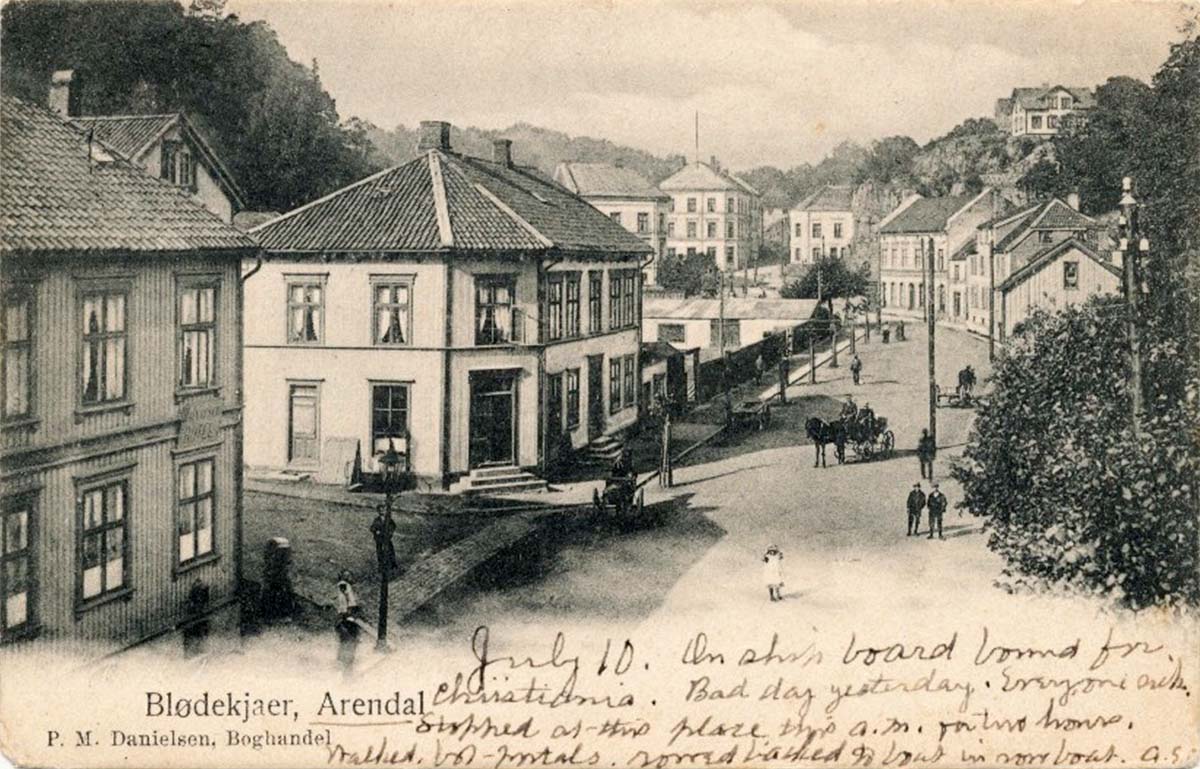 July 10. On ship board bound for
Christiania. Bad day yesterday. Everyone sick.
Blødekjaer, Arendal
Stopped at this place this a.m. for two hours.
P. M. Danielsen, Boghandel
Walked, bot postals. rowed back to boat in row boat. a.s